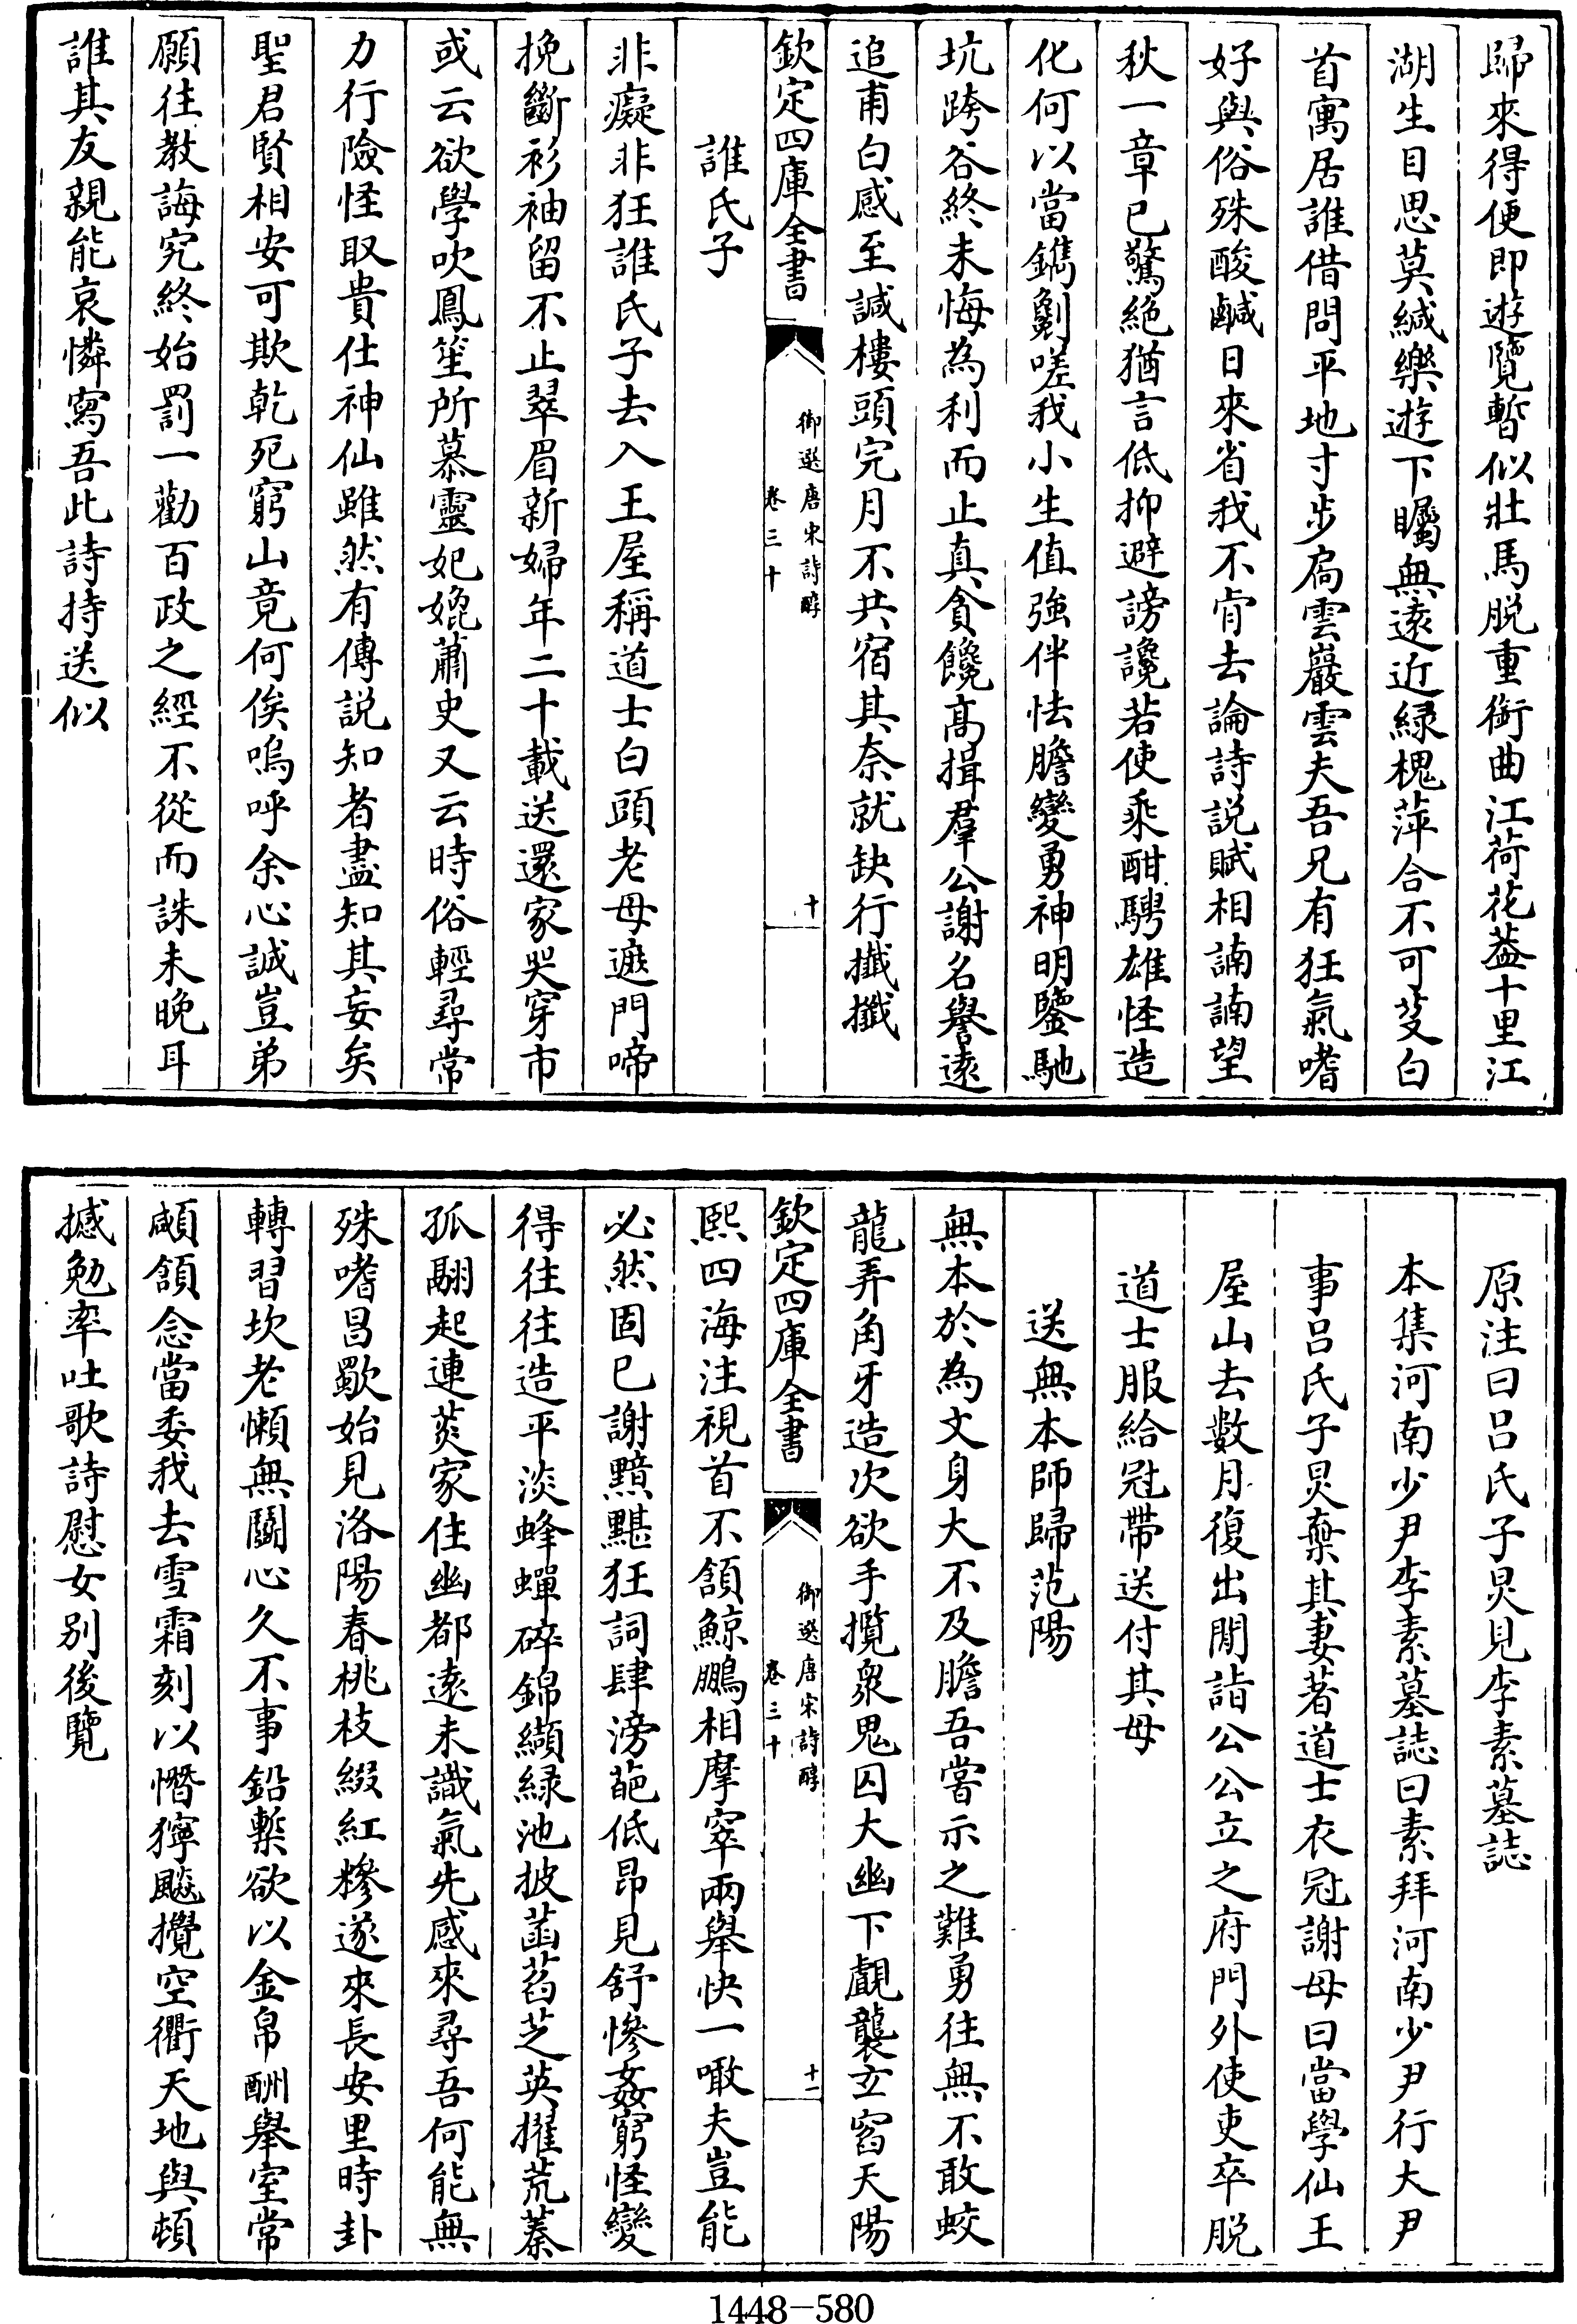 歸來得便即遊覽暫似壯馬脱重銜曲江荷花葢十里江
湖生目思莫緘樂遊下矚無遠近緑槐萍合不可芟白
首寓居誰借問平地寸步扃雲巖雲夫吾兄有狂氣嗜
好與俗殊酸鹹日來省我不肯去論詩説賦相諵諵望
秋一章已驚絶猶言低抑避謗讒若使乘酣騁雄怪造
化何以當鐫劖嗟我小生值強伴怯膽變勇神明鑒馳
坑跨谷終未悔為利而止真貪饞高揖羣公謝名譽遠
追甫白感至諴樓頭完月不共宿其奈就缺行攕攕
欽定四庫全書
御選唐宋詩醇
卷三十
十
誰氏子
非癡非狂誰氏子去入王屋稱道士白頭老母遮門啼
挽斷衫袖留不止翠眉新婦年二十載送還家哭穿市
或云欲學吹鳳笙所慕靈妃媲蕭史又云時俗輕尋常
力行險怪取貴仕神仙雖然有傳説知者盡知其妄矣
聖君賢相安可欺乾死窮山竟何俟嗚呼余心誠豈弟
願往教誨究終始罰一勸百政之經不從而誅未晩耳
誰其友親能哀憐寫吾此詩持送似
原注曰吕氏子炅見李素墓誌
本集河南少尹李素墓誌曰素拜河南少尹行大尹
事吕氏子炅棄其妻著道士衣冠謝母曰當學仙王
屋山去數月復出閒詣公公立之府門外使吏卒脱
道士服給冠帶送付其母
送無本師歸范陽
無本於為文身大不及膽吾嘗示之難勇往無不敢蛟
龍弄角牙造次欲手攬衆鬼囚大幽下覷襲玄窞天陽
欽定四庫全書
御選唐宋詩醇
卷三十
十一
熙四海注視首不頷鯨鵬相摩窣兩舉快一噉夫豈能
必然固已謝黯黮狂詞肆滂葩低昂見舒慘姦窮怪變
得往往造平淡蜂蟬碎錦纈緑池披菡萏芝英擢荒蓁
孤翮起連菼家住幽都遠未識氣先感來尋吾何能無
殊嗜昌歜始見洛陽春桃枝綴紅糝遂來長安里時卦
轉習坎老懶無鬬心久不事鉛槧欲以金帛酬舉室常
顑頷念當委我去雪霜刻以憯獰飈攪空衢天地與頓
撼勉率吐歌詩慰女别後覽
1448—580